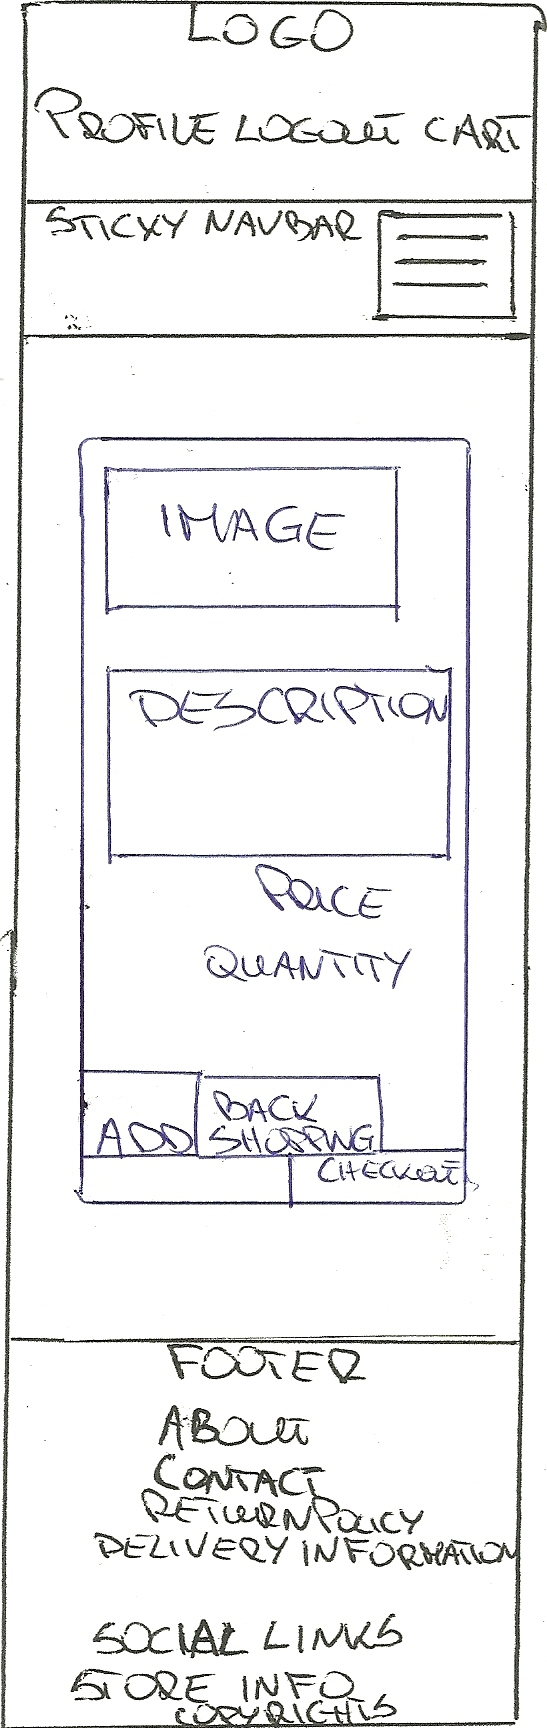 LOGO
PROFILE LOGOUT CART
STICKY NAVBAR
IMAGE
DESCRIPTION
PRICE
QUANTITY
ADD
BACK
SHOPPING
CHECKOUT
FOOTER
ABOUT
CONTACT
RETURN POLICY
DELIVERY INFORMATION
SOCIAL LINKS
STORE INFO
COPYRIGHTS